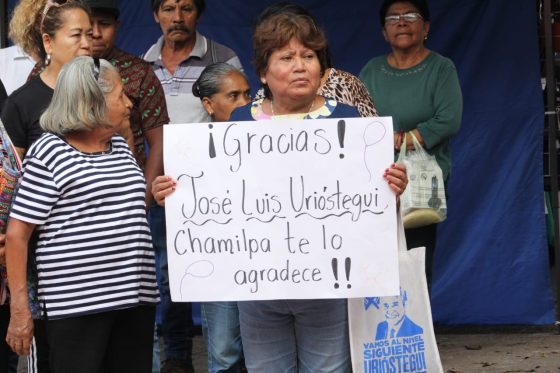 ¡Gracias!
José Luis Urióstegui,
Chamilpa te lo
agradece!!
VAMOS AL NIVEL
SIGUIENTE
URIÓSTEGUI